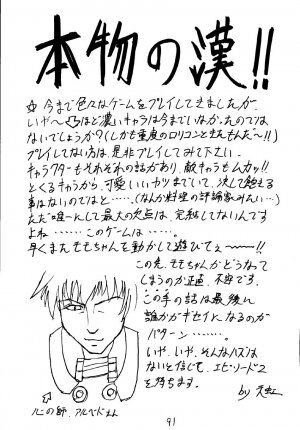 本物の漢!!
今まで色々なゲームをプレイしてきましたが
いや〜ほど濃いキャラは今までいなかったのでは
ないでしょうか?(しかも重度のロリコンときたもんだ〜!!)
プレイしてない方は、是非プレイしてみて下さい。
キャラクターもそれぞれの話があり、敵キャラもムカッ!!
とくるキャラから、可愛いいヤツまでいて、決して飽きる
事はないのでなはと…(なんか料理の評論家みたい…)
ただ唯一にして最大の欠点は、完結してないんです
よね……このゲームは……。
早くまたももちゃんを動かして遊びてぇ〜〜!!
この先、ももちゃんがどうなって
しまうのか正直、不安です。
この手の話は最後に
誰かがギセイになるのが
パターン……。
いや、いや、そんなハズは
ないと信じて、エピソード2
を待ちます。
by
心の師、アルベドさん
91